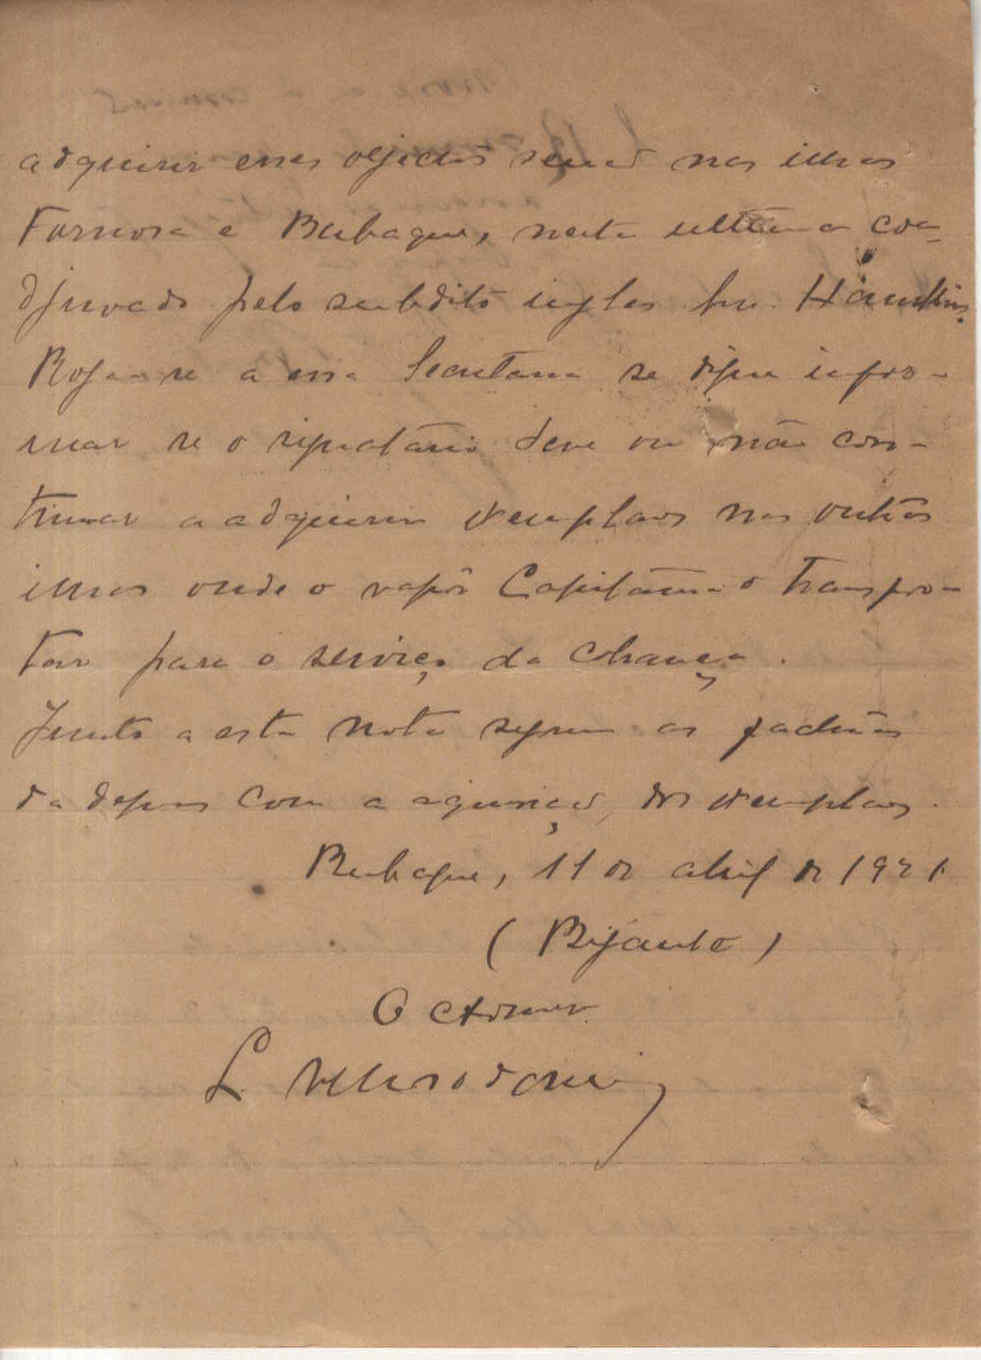 adquirir esses objectos senão nas ilhas
Formosa e Bubaque, nesta ultima coa-
djuvado pelo subdito ingles snr.
Roga-se a essa Secretaria se digne infor-
mar se o signatário deve ou não con-
tinuar a adquirir exemplares nas outras
ilhas onde o vapôr Capitania o transpor-
tar para o serviço da cobrança.
Junto a esta nota seguem as facturas
da despesa com a aquisição dos exemplares.
Bubaque, 11 de abril de 1921
(Bijante)
O
L